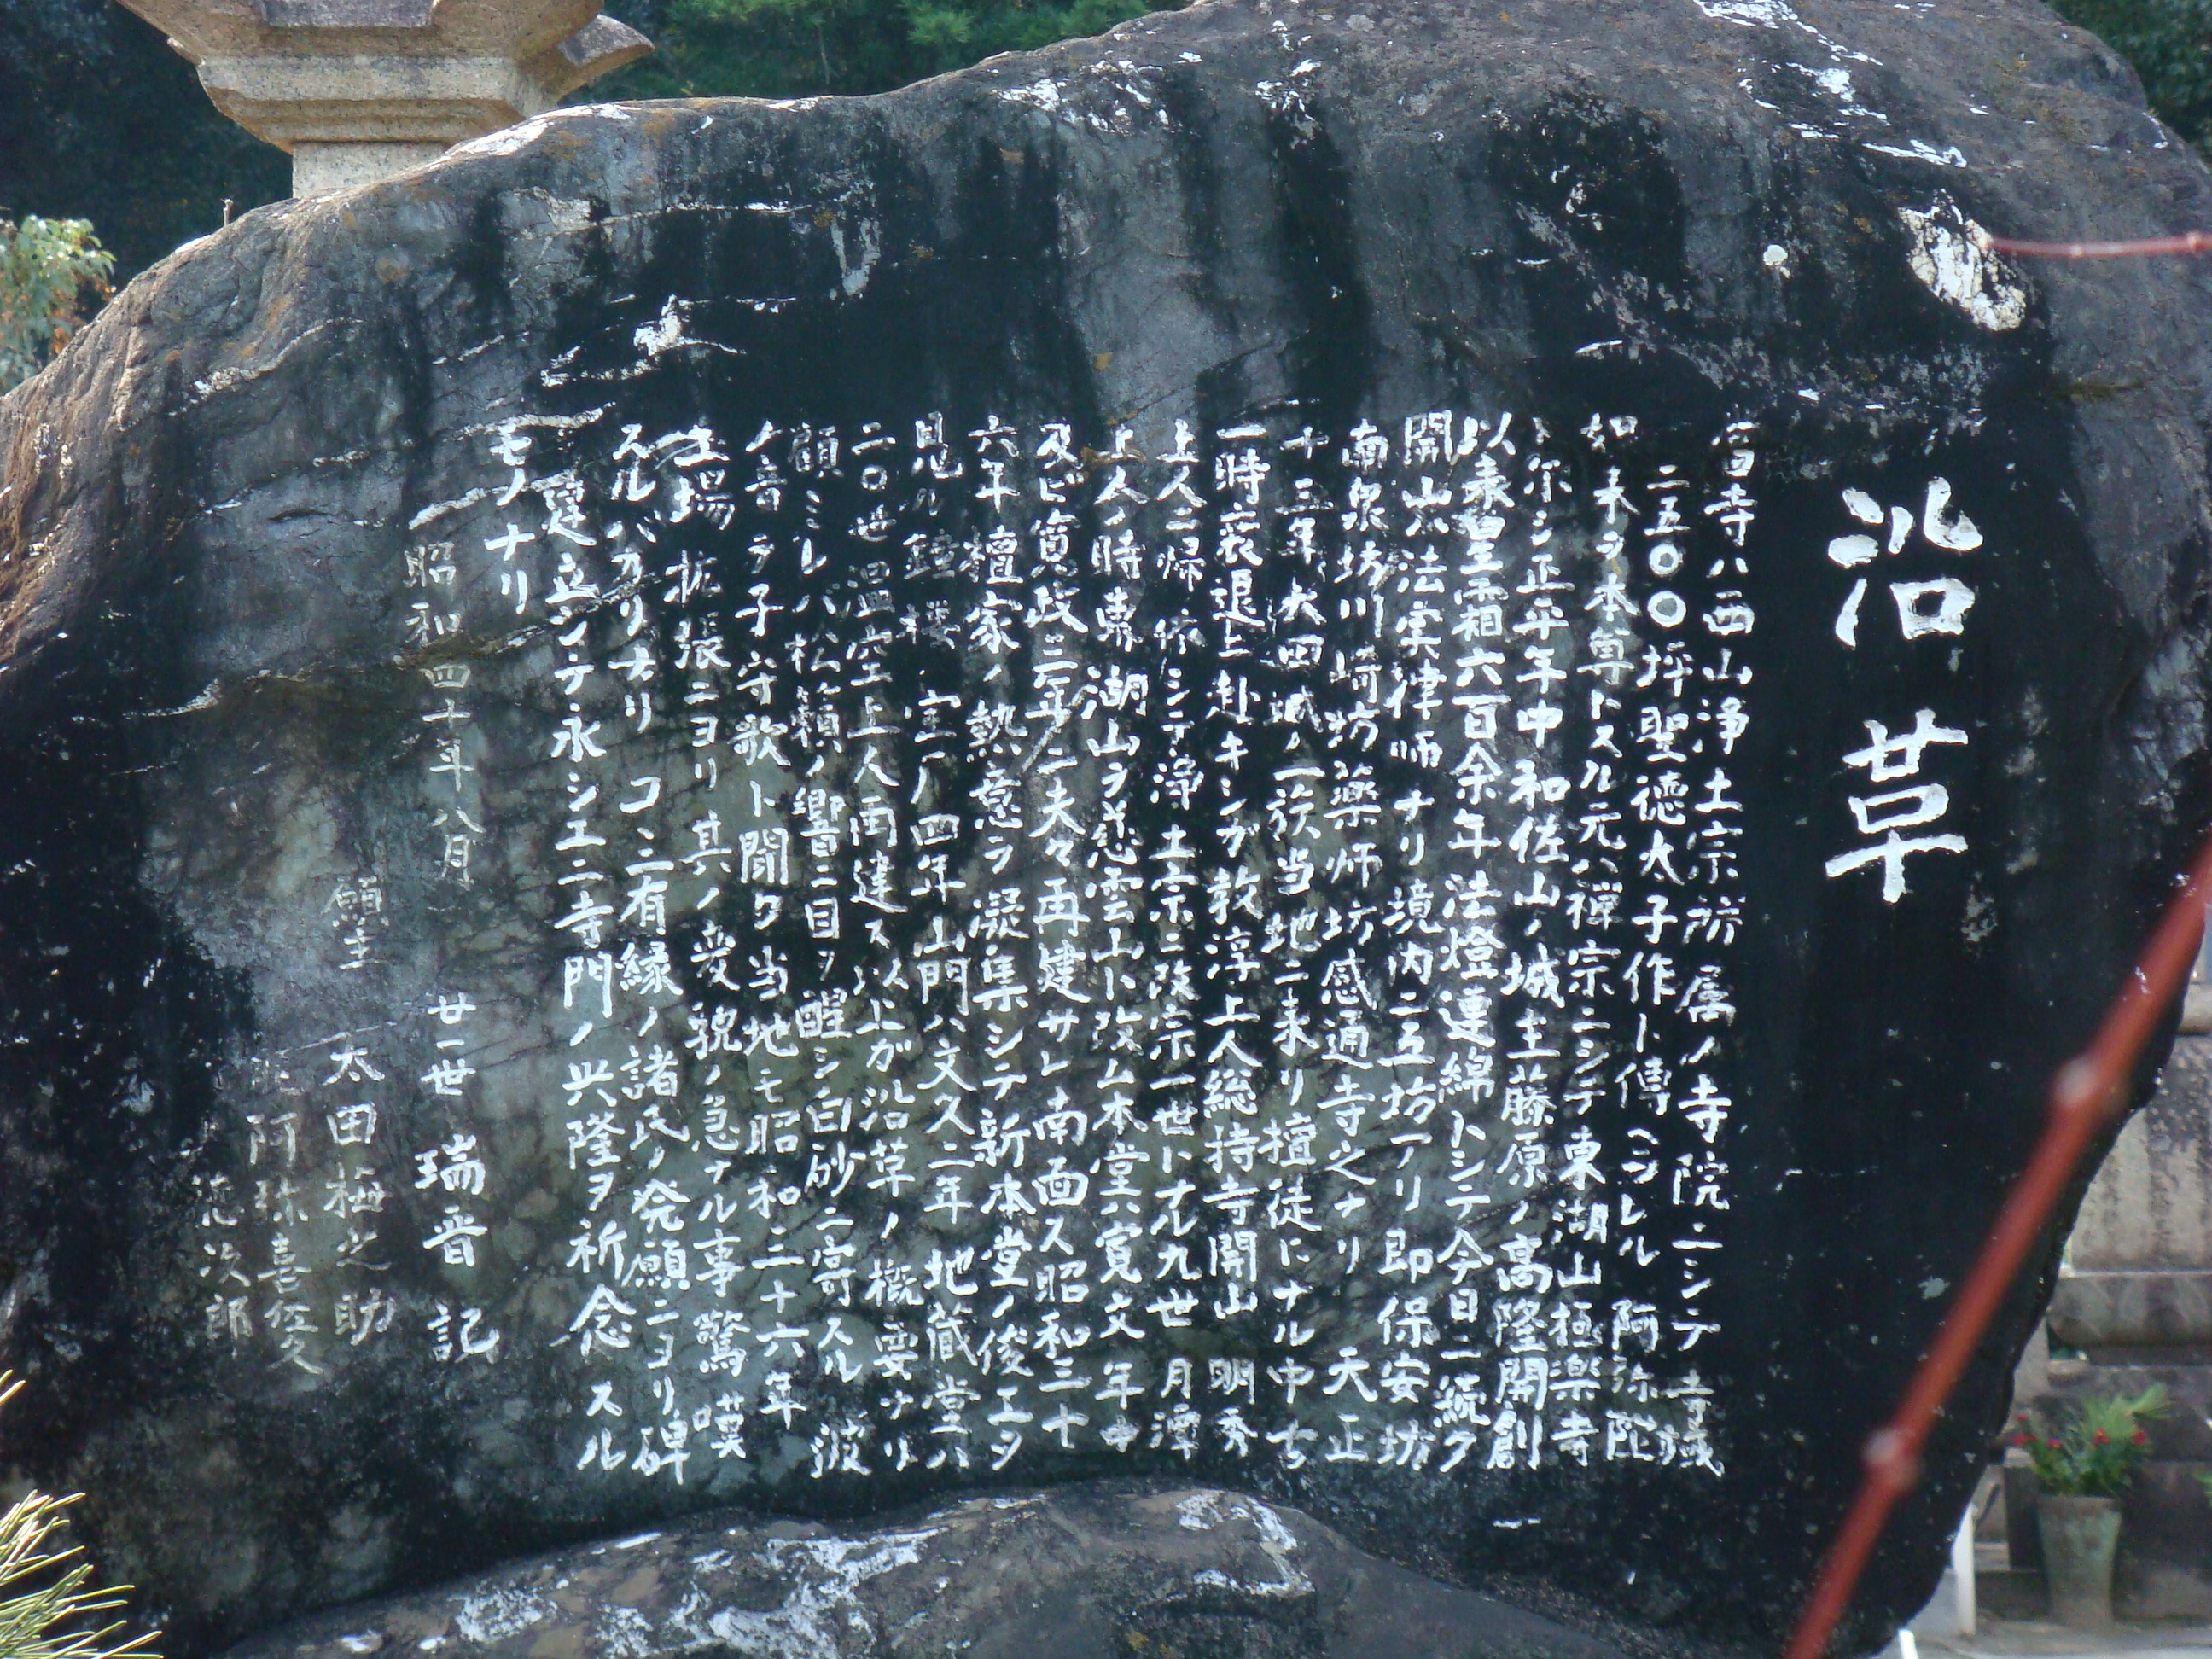 沿革
当寺ハ西山浄土宗所属ノ寺院ニシテ寺域
二五〇〇坪聖徳太子作ト傳ヘラレル阿弥陀
如来ヲ本尊トスル元ハ禅宗ニシテ東湖山極楽寺
ト称シ正平年中和佐山ノ城主藤原ノ高隆開創
以来星霜六百余年法燈連綿トシテ今日ニ続ク
開山ハ法実律師ナリ境内ニ五坊アリ即保安坊
南泉坊川崎坊薬师坊感通寺之ナリ天正
十三年太田城ノ一族当地ニ来リ檀徒トナル中古
一時衰退ニ赴キシガ教淳上人総持寺開山明秀
上人ニ帰依シテ浄土宗ニ改宗一世トナル九世月潭
上人ノ時東湖山ヲ慈雲山ト改ム本堂ハ寛文年中
及ビ寛政三年ニ夫々再建サレ南面ス昭和三十
六年檀家ノ熱意ヲ凝集シテ新本堂ノ俊工ヲ
見ル鐘楼ハ宝ノ四年山門ハ文久二年地蔵堂ハ
二〇世温空上人再建ス以上ガ沿革ノ概要ナリ
顧ミレバ松籟ノ響ニ目ヲ醒シ白砂ニ寄スル波
ノ音ヲ子守歌ト聞ク当地モ昭和二十六年
工場拡張ニヨリ其ノ変貌ノ急ナル事驚嘆
スルバカリナリココニ有縁ノ諸氏ノ発願ニヨリ碑
ヲ建立シテ永シエニ寺門ノ興隆ヲ祈念スル
モノナリ
昭和四十年八月
廿一世 瑞晋 記
願主 太田極之助
阿弥喜俊久
慈次郎